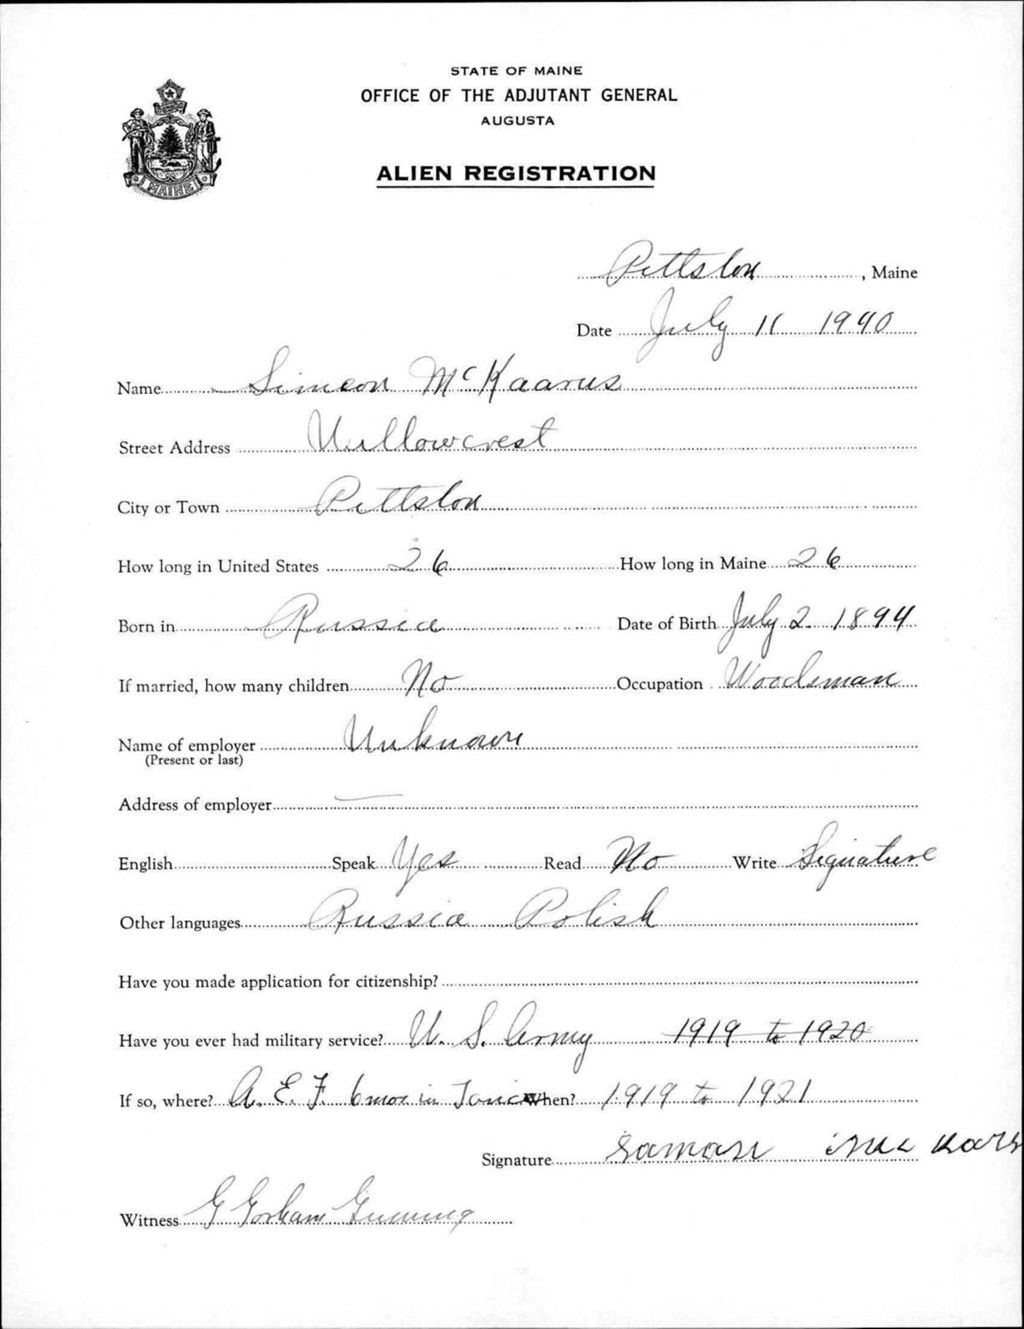 STATE OF MAINE
OFFICE OF THE ADJUTANT GENERAL
AUGUSTA
ALIEN REGISTRATION
MAINE
Pittston, Maine
Date July 11 1940
Name Simeon McKaarus
Street Address Willowcrest
City or Town Pittston
How long in United States 26 How long in Maine 26
Born in Russia Date of Birth July 2 1894
If married, how many children No Occupation Woodsman
Name of employer Unknown
(Present or last)
Address of employer —
English Speak Yes Read No Write Signature
Other languages Russia Polish
Have you made application for citizenship?
Have you ever had military service? U. S. Army 1919 to 1920
If so, where? A. E. F. 6 mos in When? 1919 to 1921
Signature
Witness G Gorham